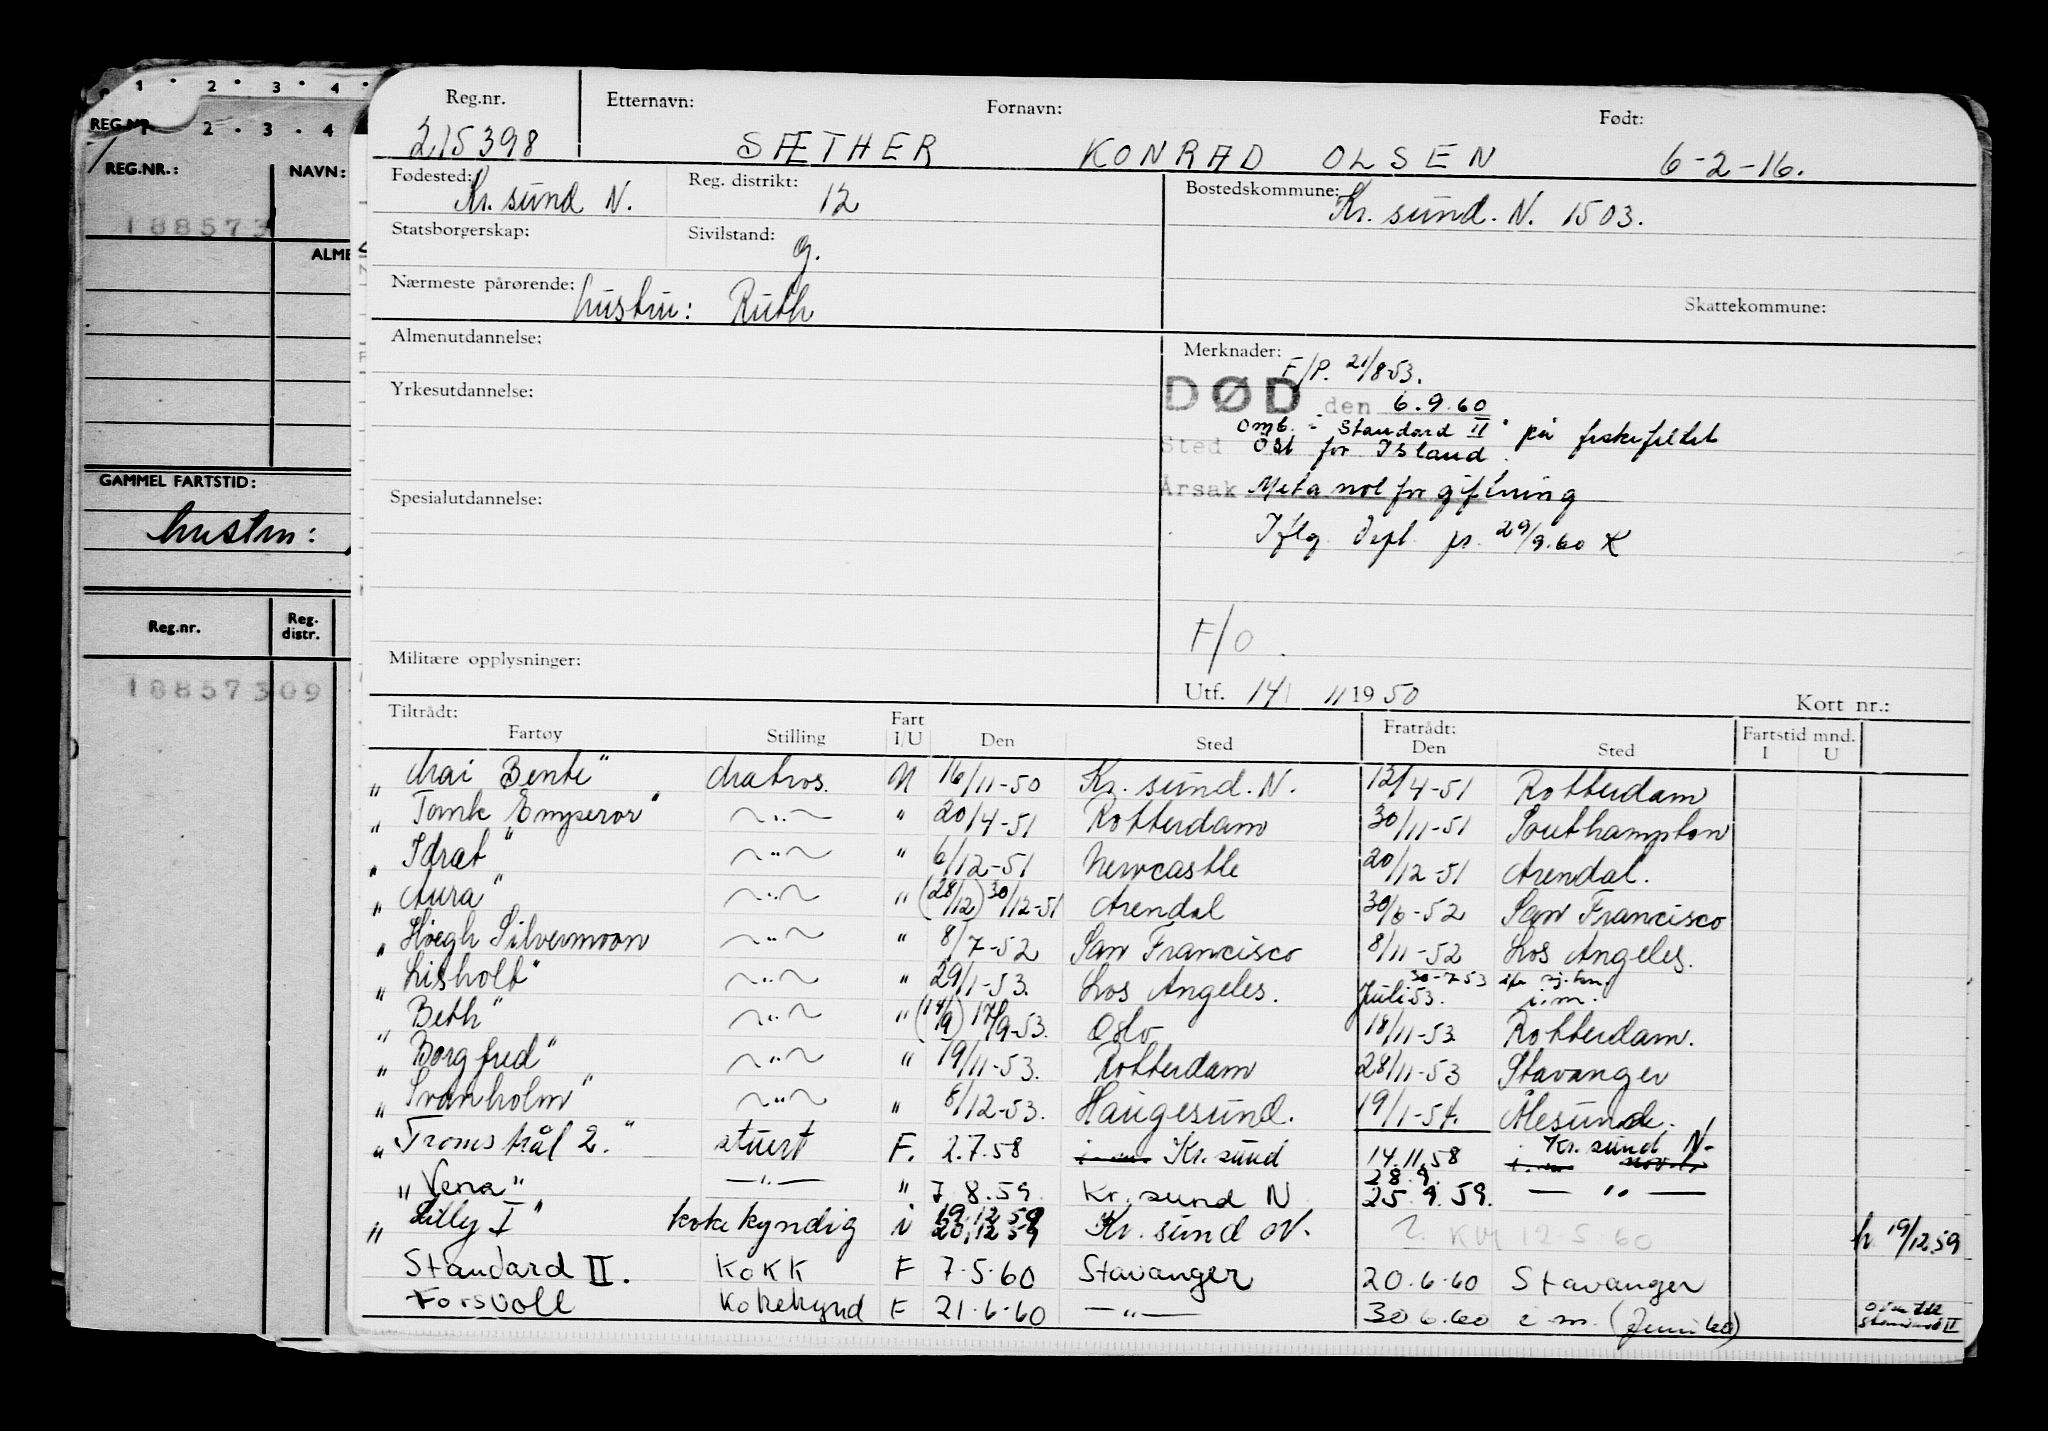 1 2 3 4
REG.NR. 1 2 3 4
REG.NR.: NAVN:
188573
ALME
GAMMEL FARTSTID:
hustru:
Reg.nr. Reg. distr.
18857309
Reg.nr. Etternavn: Fornavn: Født:
215398 SÆTHER KONRAD OLSEN 6-2-16.
Fødested: Kr. sund N. Reg. distrikt: 12 Bostedskommune: Kr. sund. N. 1503.
Statsborgerskap: Sivilstand: g.
Nærmeste pårørende: hustru: Ruth Skattekommune:
Almenutdannelse: Merknader: F/P. 21/8 53.
Yrkesutdannelse: DØD den 6.9.60
omb. "Standard II" på fiskefeltet
Sted Öst for Island.
Spesialutdannelse: Årsak Metanol forgiftning
Iflg. Dept. pr. 29/9.60 K
F/O.
Militære opplysninger:
Utf. 14/11 1950 Kort nr.:
Tiltrådt: Fratrådt: Fartstid mnd.
Fartøy Stilling Fart I/U Den Sted Den Sted I U
"Mai Bente" Matros. U 16/11-50 Kr. sund. N. 12/4-51 Rotterdam
"Tank Emperor" ~"~ " 20/4-51 Rotterdam 30/11-51 Southampton
"Idræt" ~"~ " 6/12-51 Newcastle 20/12-51 Arendal.
"Aura" ~"~ " (28/12) 30/12-51 Arendal 30/6-52 San Francisco
"Høegh Silvermoon ~"~ " 8/7-52 San Francisco 8/11-52 Los Angeles.
"Lisholt" ~"~ " 29/1-53. Los Angeles. Juli 53. 30-7 53 i.m.
"Beth" ~"~ " (14/9) 17/9-53. Oslo 18/11-53 Rotterdam.
"Borgfred" ~"~ " 19/11-53. Rotterdam 28/11-53 Stavanger
"Svanholm" ~"~ " 8/12-53. Haugesund. 19/1-54. Ålesund.
"Tromstrål 2." stuert F. 2.7.58 i.m. Kr. sund 14.11.58 Kr. sund N.
"Vena" —"— " 7.8.59. Kr. sund N 28.9. 25.9.59. —"—
"Lilly I" kokekyndig i 19.12.59 20.12 59 Kr. sund N. ? 12-5-60 h 19/12 59
Standard II. Kokk F 7.5.60 Stavanger 20.6.60 Stavanger
Forsvoll Kokekynd F 21.6-60 —"— 30 6.60 i m. (Juni 60) Standard II